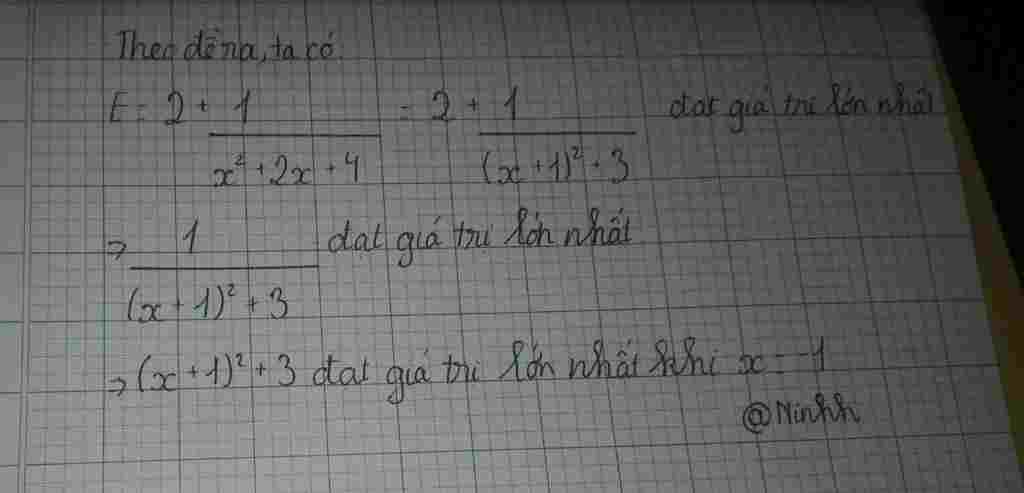 Theo đề ra, ta có
E = 2 + 1/(x² + 2x + 4) = 2 + 1/((x + 1)² + 3) đạt giá trị lớn nhất
⇒ 1/((x + 1)² + 3) đạt giá trị lớn nhất
⇒ (x + 1)² + 3 đạt giá trị lớn nhất khi x = -1
@Ninhh